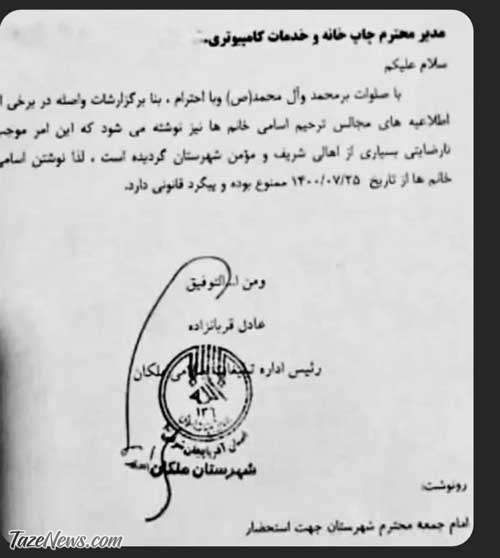 مدیر محترم چاپ خانه و خدمات کامپیوتری.
سلام علیکم
با صلوات برمحمد وآل محمد(ص) وبا احترام ، بنا برگزارشات واصله در برخی از
اطلاعیه های مجالس ترحیم اسامی خانم ها نیز نوشته می شود که این امر موجب
نارضایتی بسیاری از اهالی شریف و مؤمن شهرستان گردیده است ، لذا نوشتن اسامی
خانم ها از تاریخ ۱۴۰۰/۰۷/۲۵ ممنوع بوده و پیگرد قانونی دارد.
ومن الله التوفیق
عادل قربانزاده
رئیس اداره تبلیغات اسلامی ملکان
۱۳۶
استان آذربایجان شرقی
شهرستان ملکان
رونوشت:
امام جمعه محترم شهرستان جهت استحضار
TazeNews.com